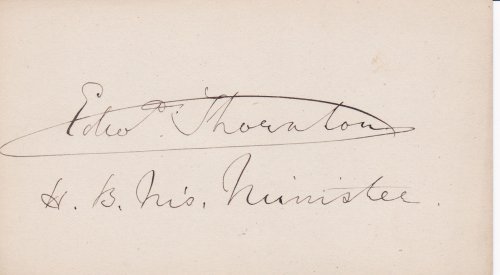 Edwd. Thornton
H. B. M's. Minister.